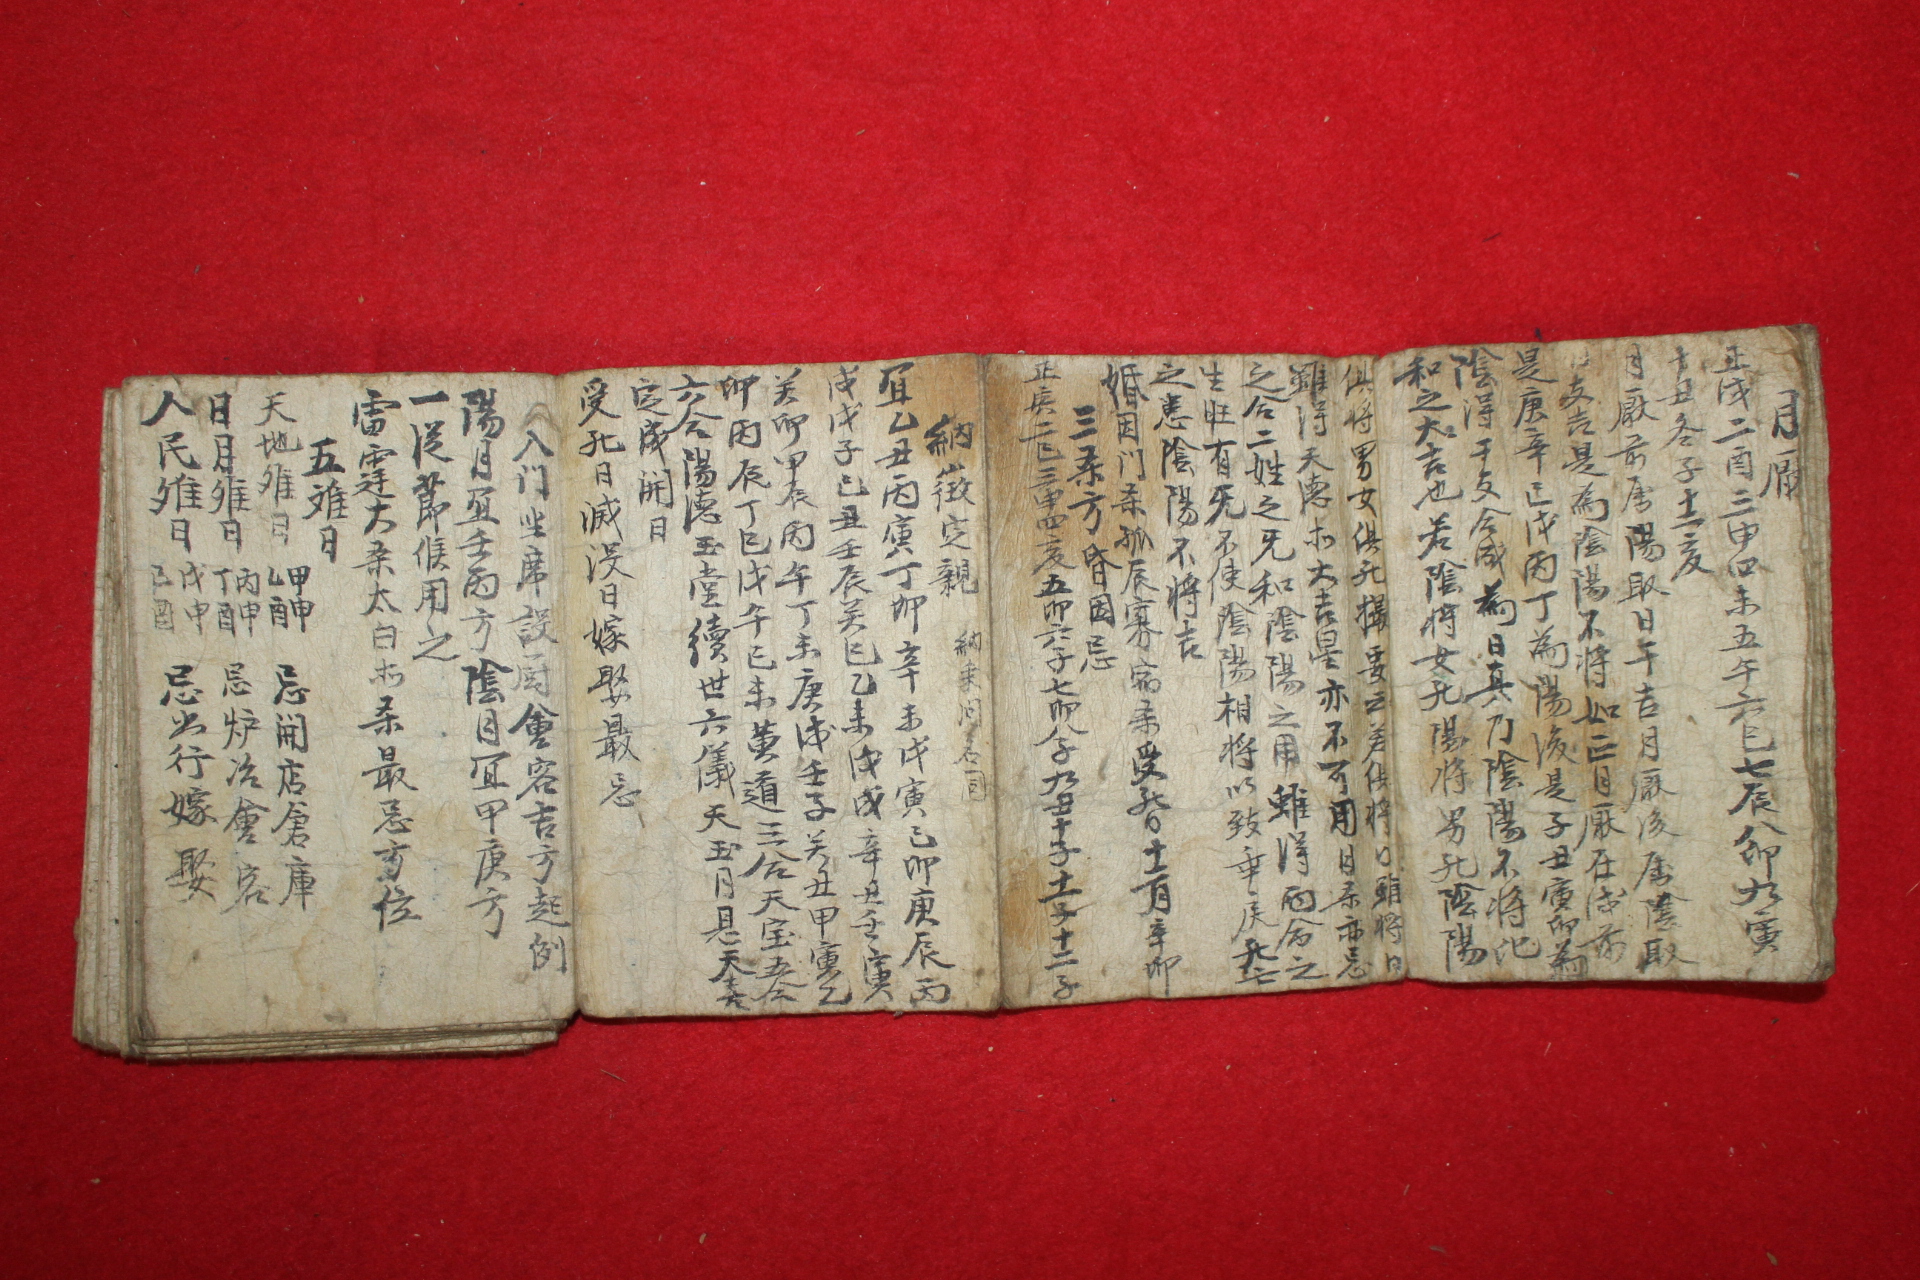 月厭
正戌二酉三申四未五午六巳七辰八卯九寅
十丑冬子十二亥
月厭前屬陽取日午吉月厭後屬陰取
支吉是為陰陽不將如正月厭在戌前
是庚辛己戊丙丁為陽後是子丑寅卯為
陰得干支合成為日真乃陰陽不將
和之大吉也若陰將女死陽將男死陰陽
俱將男女俱死
雖得天德大吉星亦不可用日亦忌
之合二姓之和陰陽之用雖得兩合之
生旺有不使陰陽相將以致
之患陰陽不將吉
婚因门杀孤辰寡宿杀受死日十二月辛卯
三杀方 昏因忌
正亥二巳三申四亥五卯六子七卯八子九丑十子十一子十二子
納徵定親
宜乙丑丙寅丁卯辛未戊寅己卯庚辰丙
戌戊子己丑壬辰癸巳乙未戊戌辛丑壬寅
癸卯甲辰丙午丁未庚戌壬子癸丑甲寅乙
卯丙辰丁巳戊午己未黄道三合天宝五合
六合陽德玉堂續世六儀天玉月恩天喜
定成開日
受死日滅没日嫁娶最忌
入门坐席設厨會客吉方起例
陽月宜壬丙方陰月宜甲庚方
一從節候用之
雷霆大杀太白杀最忌方位
五雉日
天地雉日 甲申 乙酉 忌開店倉庫
日月雉日 丙申 丁酉 忌炉冶會客
人民雉日 戊申 己酉 忌出行嫁娶